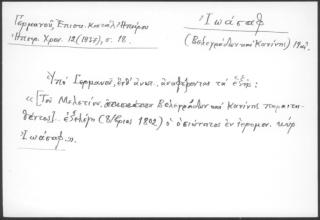 Γερμανοῦ, Ἐπισκ. κατάλ. Ἠπείρου
Ἠπειρ. Χρον. 12 (1937), σ. 18.
Ἰωάσαφ
(Βελεγράδων καὶ Κανίνης) 19ος
Ὑπὸ Γερμανοῦ, ἔνθ' ἀνωτ., ἀναφέρονται τὰ ἑξῆς:
«[Τοῦ Μελετίου Βελεγράδων καὶ Κανίνης παραιτη-
θέντος].. ἐξελέγη (8/βριος 1802) ὁ ὁσιώτατος ἐν ἱερομον. κὺρ
Ἰωάσαφ.».